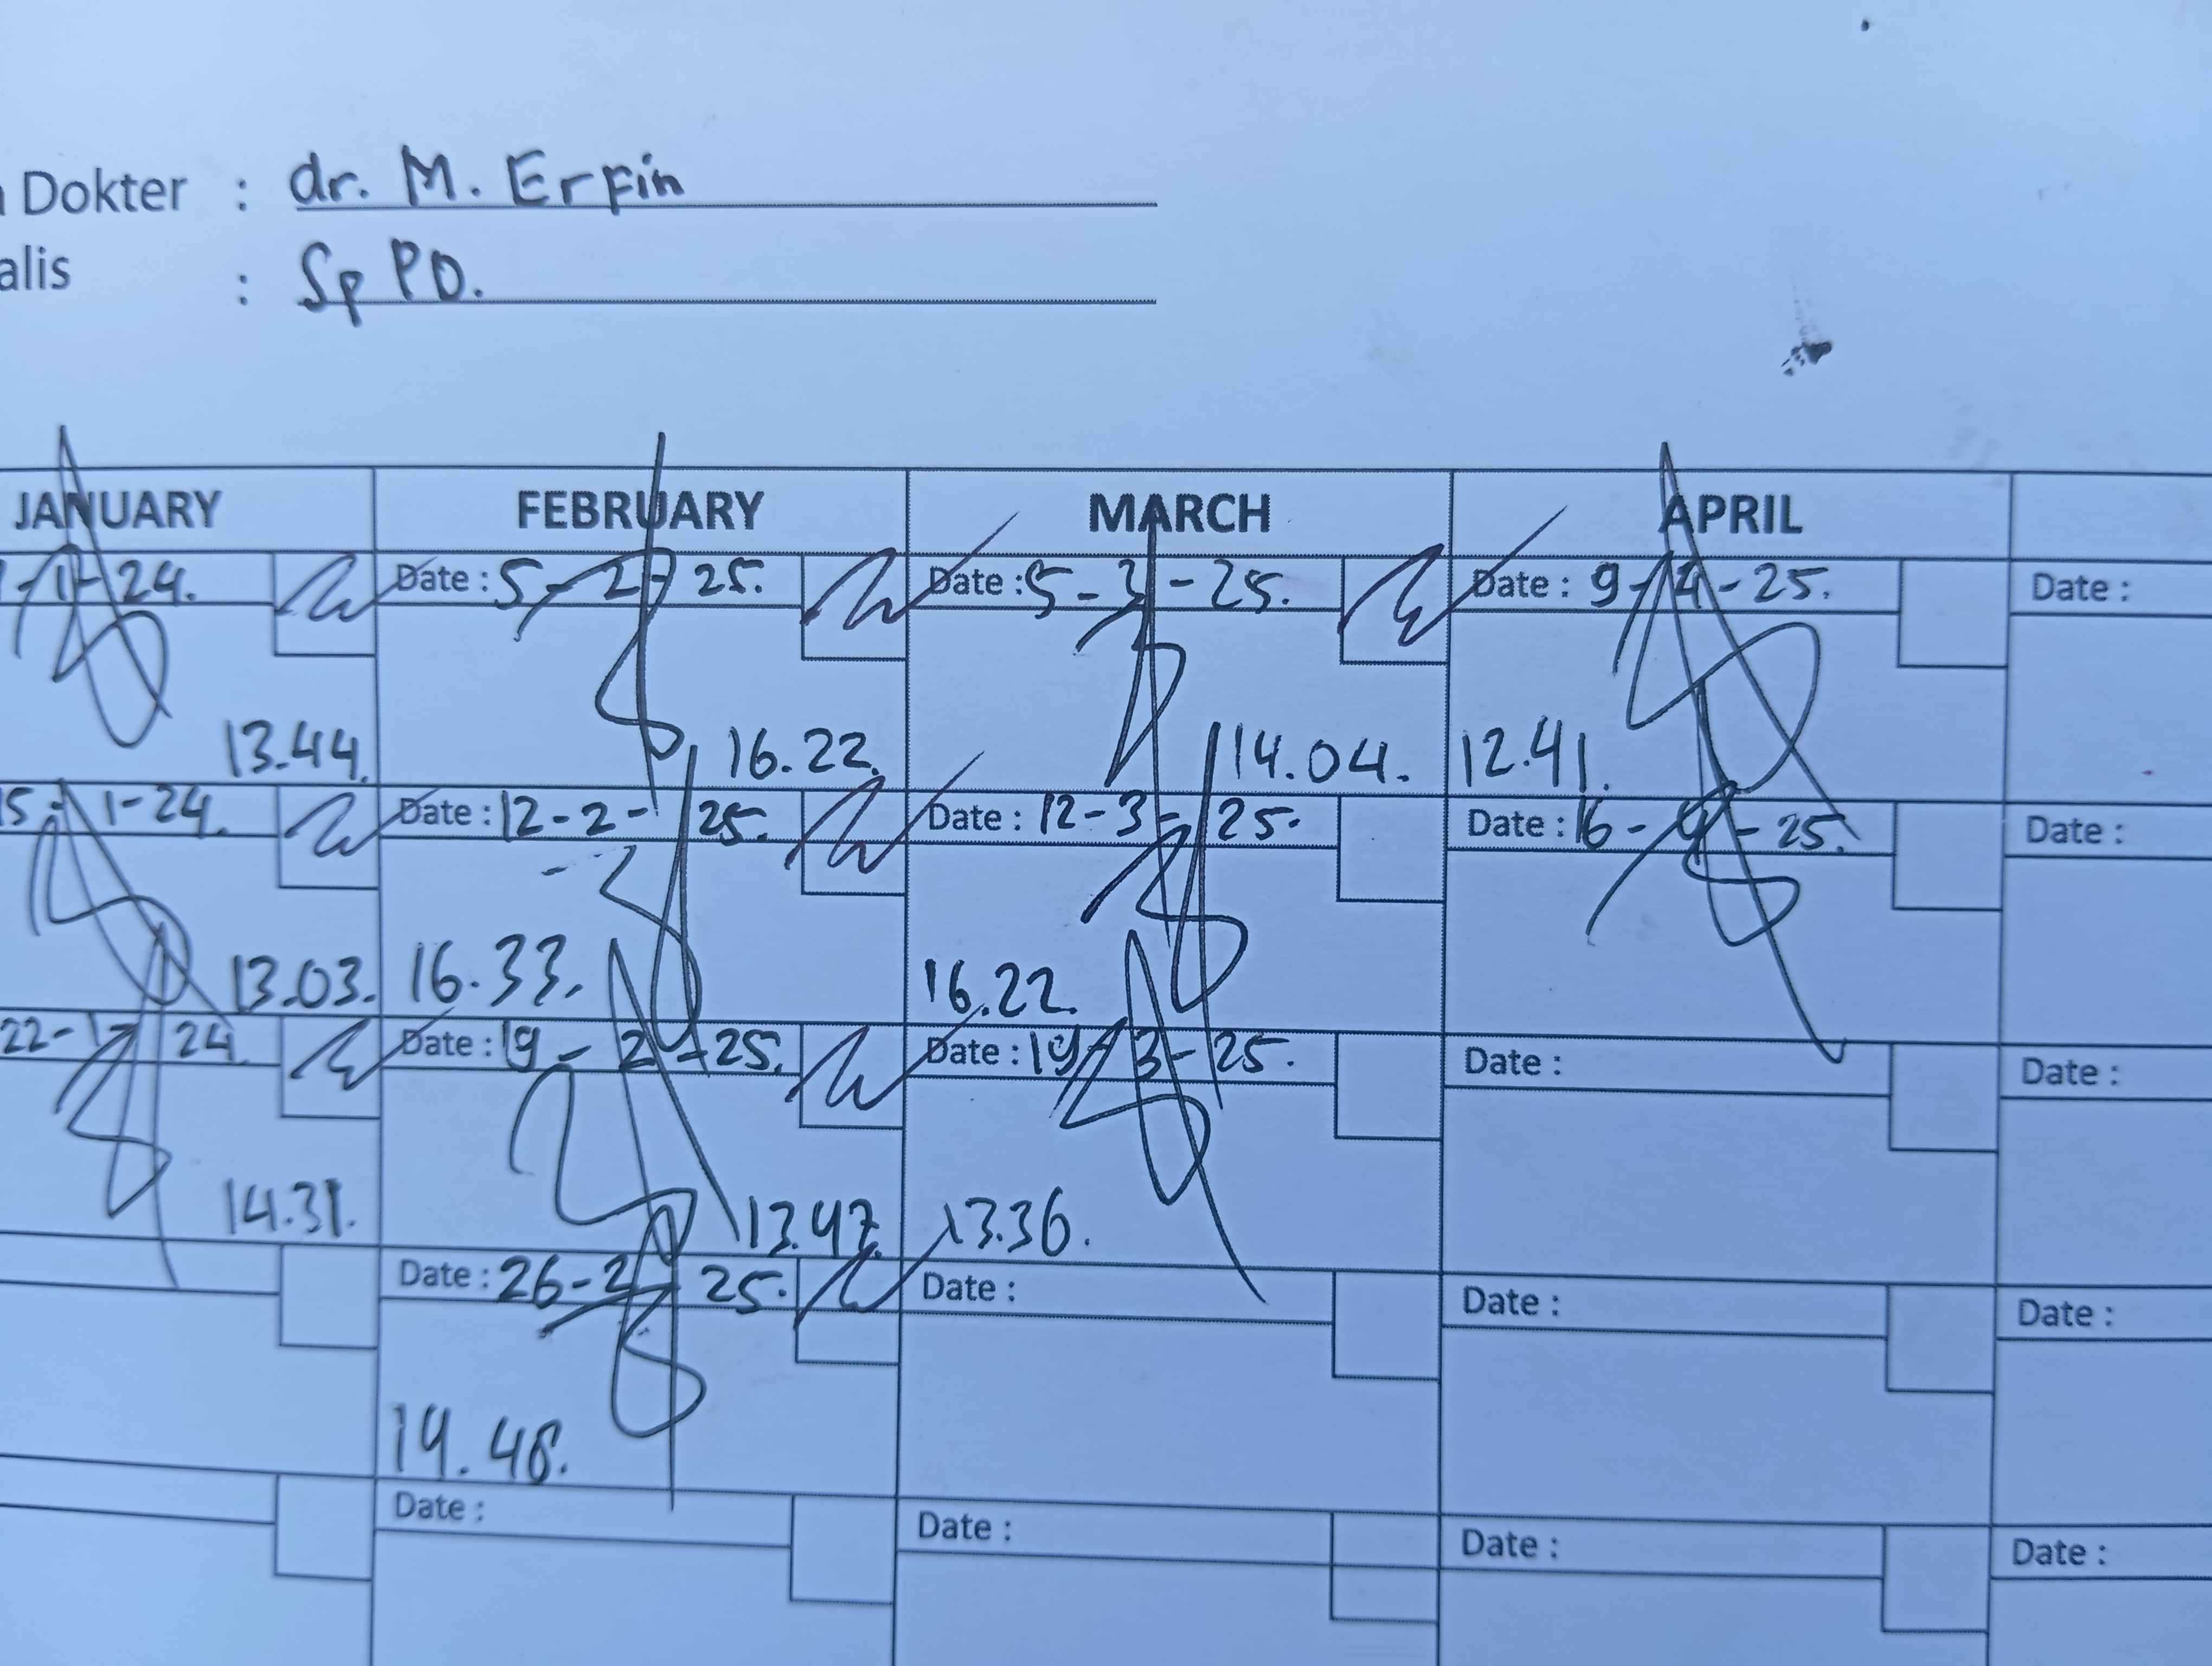 Dokter : dr. M. Erfin
alis : Sp PD.
JANUARY FEBRUARY MARCH APRIL
-1-24. Date : 5-2-25. Date : 5-3-25. Date : 9-4-25. Date :
13.44. 16.22. 14.04. 12.41.
15-1-24. Date : 12-2-25. Date : 12-3-25. Date : 16-4-25. Date :
13.03. 16.33. 16.22.
22-1-24 Date : 19-2-25. Date : 19-3-25. Date : Date :
14.31. 13.47. 13.36.
Date : 26-2-25. Date : Date : Date :
14.48.
Date : Date : Date : Date :